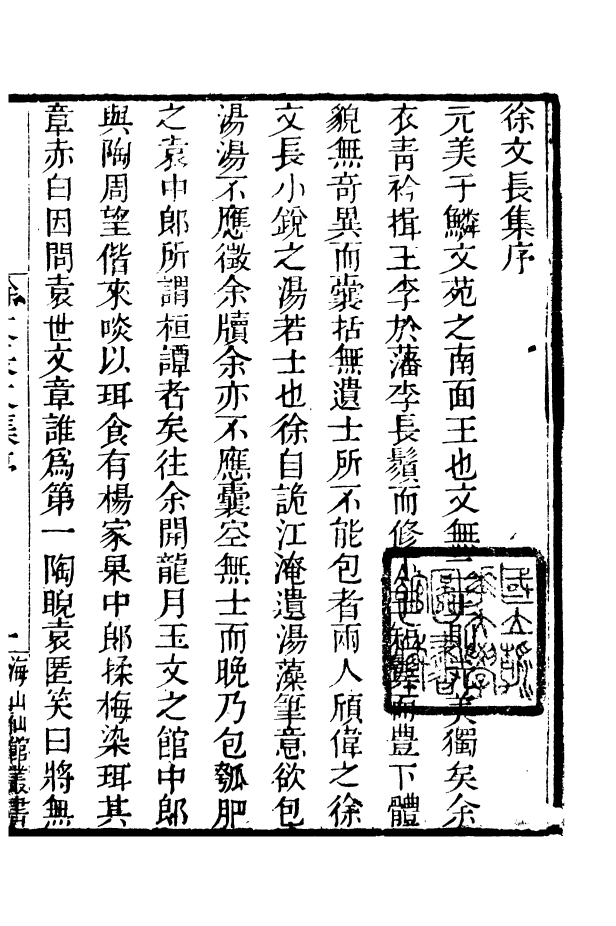 徐文長集序
元美于鱗文苑之南面王也文無二王則元美獨矣余
衣青衿揖王李於藩李長鬚而修 短鬢而豐下體
貌無奇異而囊括無遺士所不能包者兩人頎偉之徐
文長小銳之湯若士也徐自詭江淹遺湯藻筆意欲包
湯湯不應徵余牘余亦不應囊空無士而晚乃包瓠肥
之袁中郎所謂桓譚者矣往余開龍月玉文之館中郎
與陶周望偕來啖以珥食有楊家果中郎揉梅染珥其
章赤白因問袁世文章誰爲第一陶睨袁匿笑曰將無
集序 一 海山仙館叢書